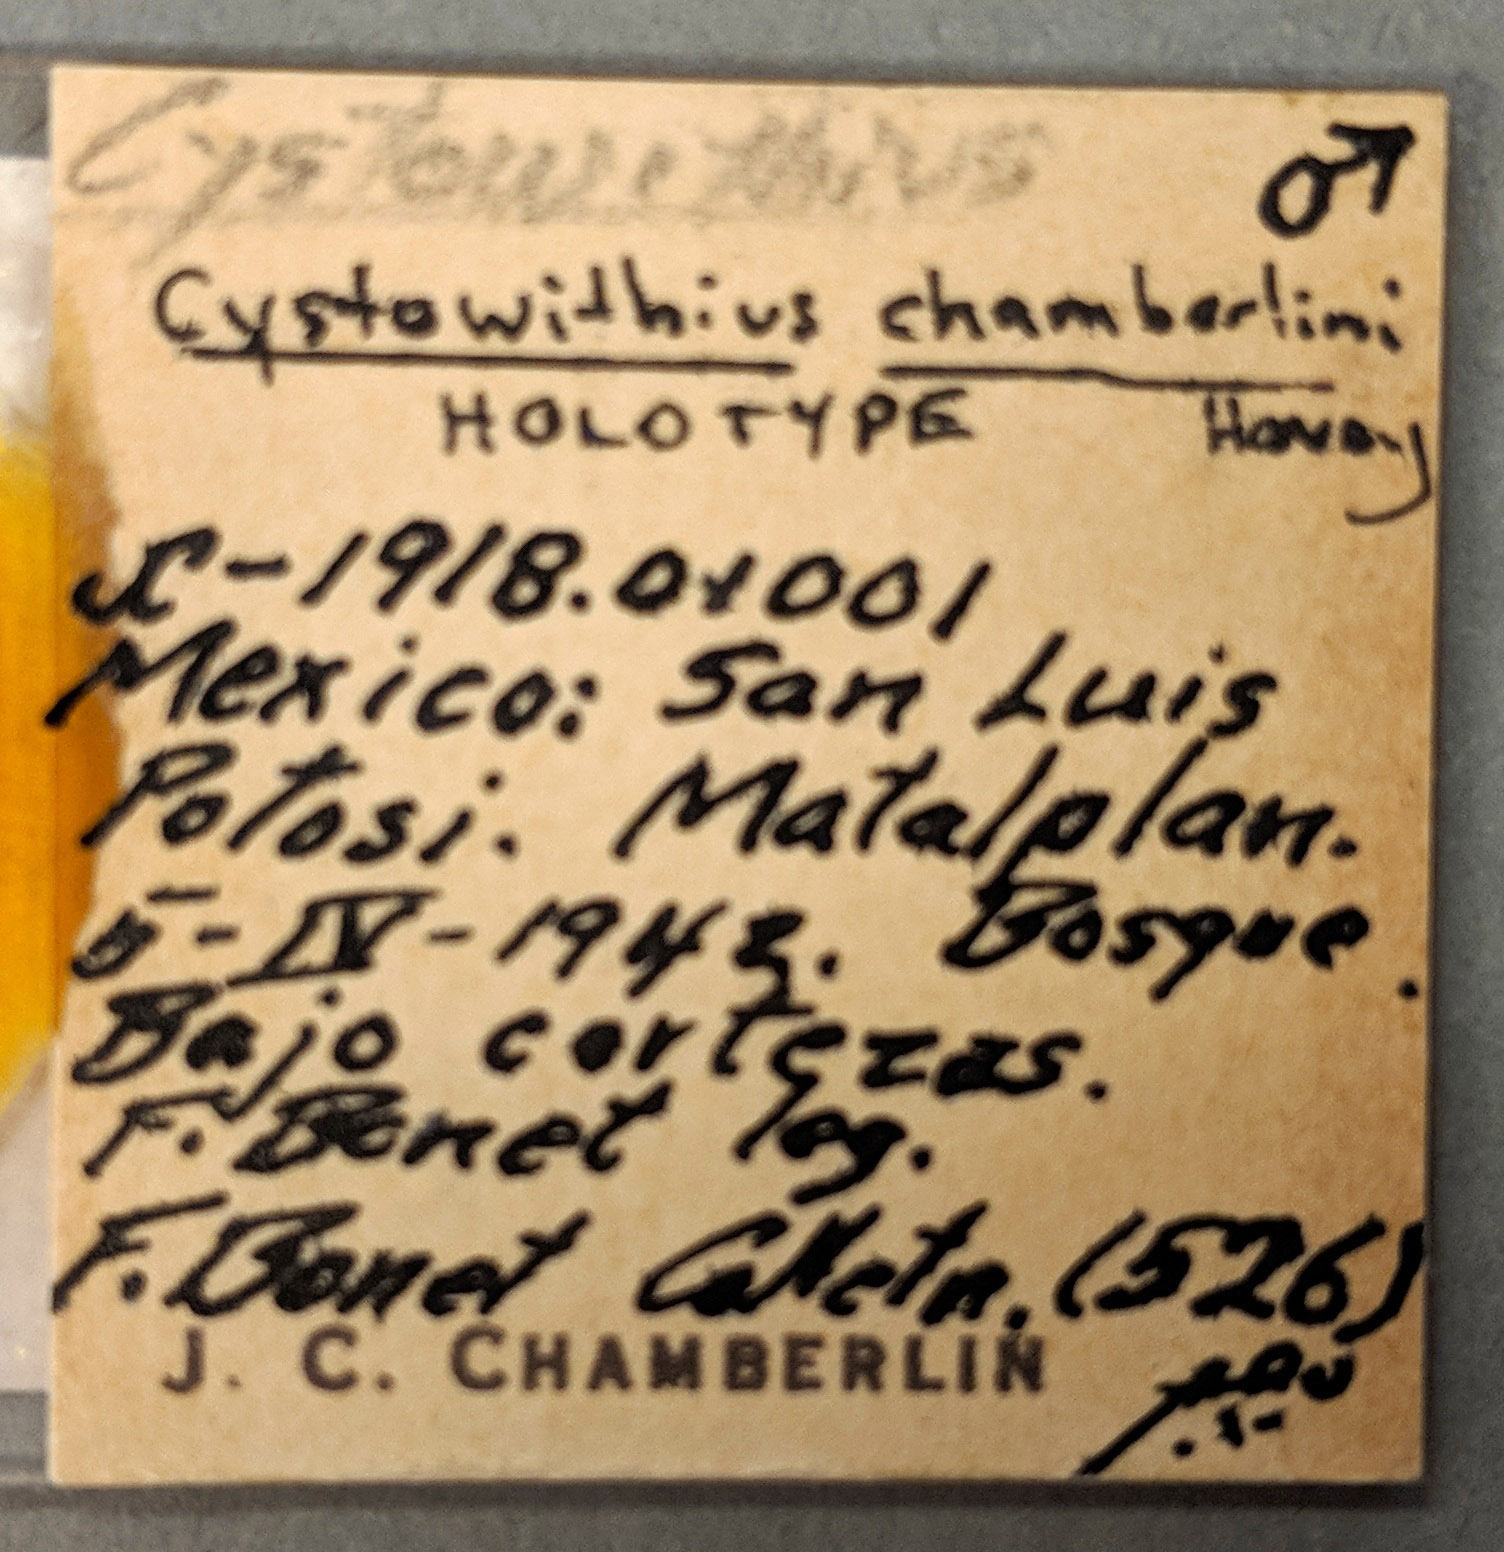 Cystowithius
♂
Cystowithius chamberlini
HOLOTYPE Harvey
JC-1918.01001
Mexico: San Luis
Potosi. Matalplan.
5-IV-1942. Bosque.
Bajo cortezas.
F. Bonet leg.
F. Bonet Collctn. (526)
J. C. CHAMBERLIN